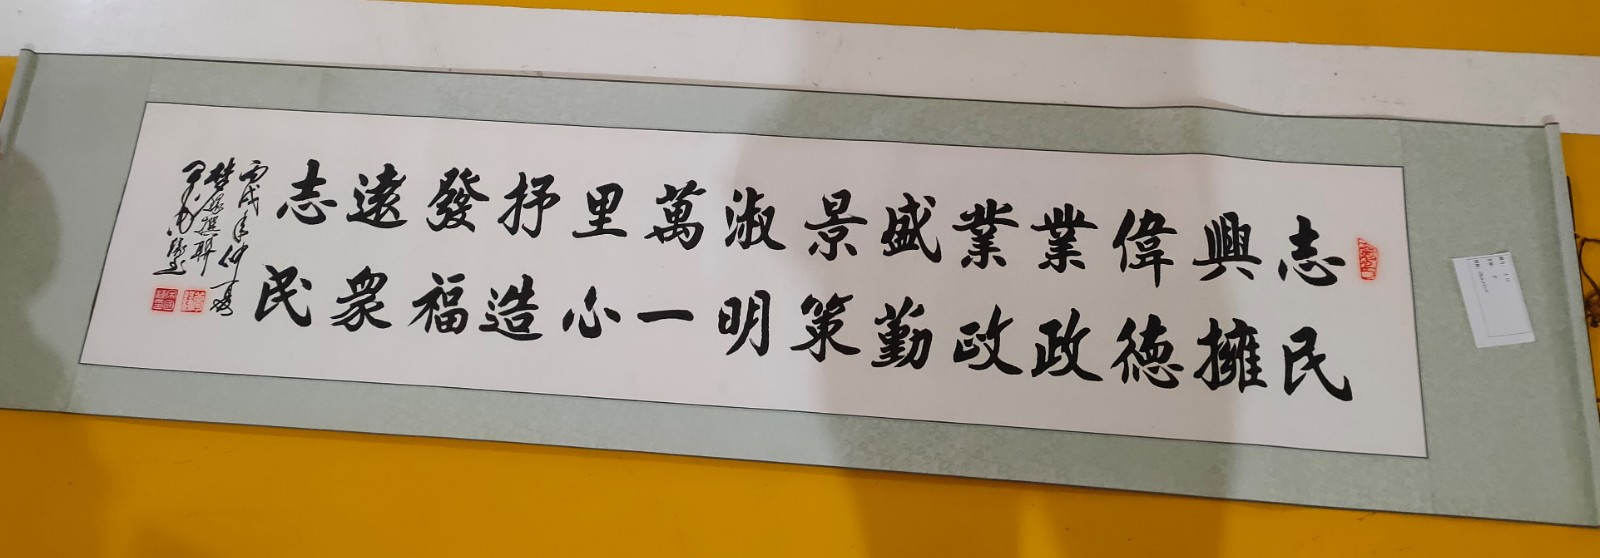 志興偉業業盛景淑萬里抒發遠志
民擁德政政勤策明一心造福衆民
丙戌年仲夏
撰聯